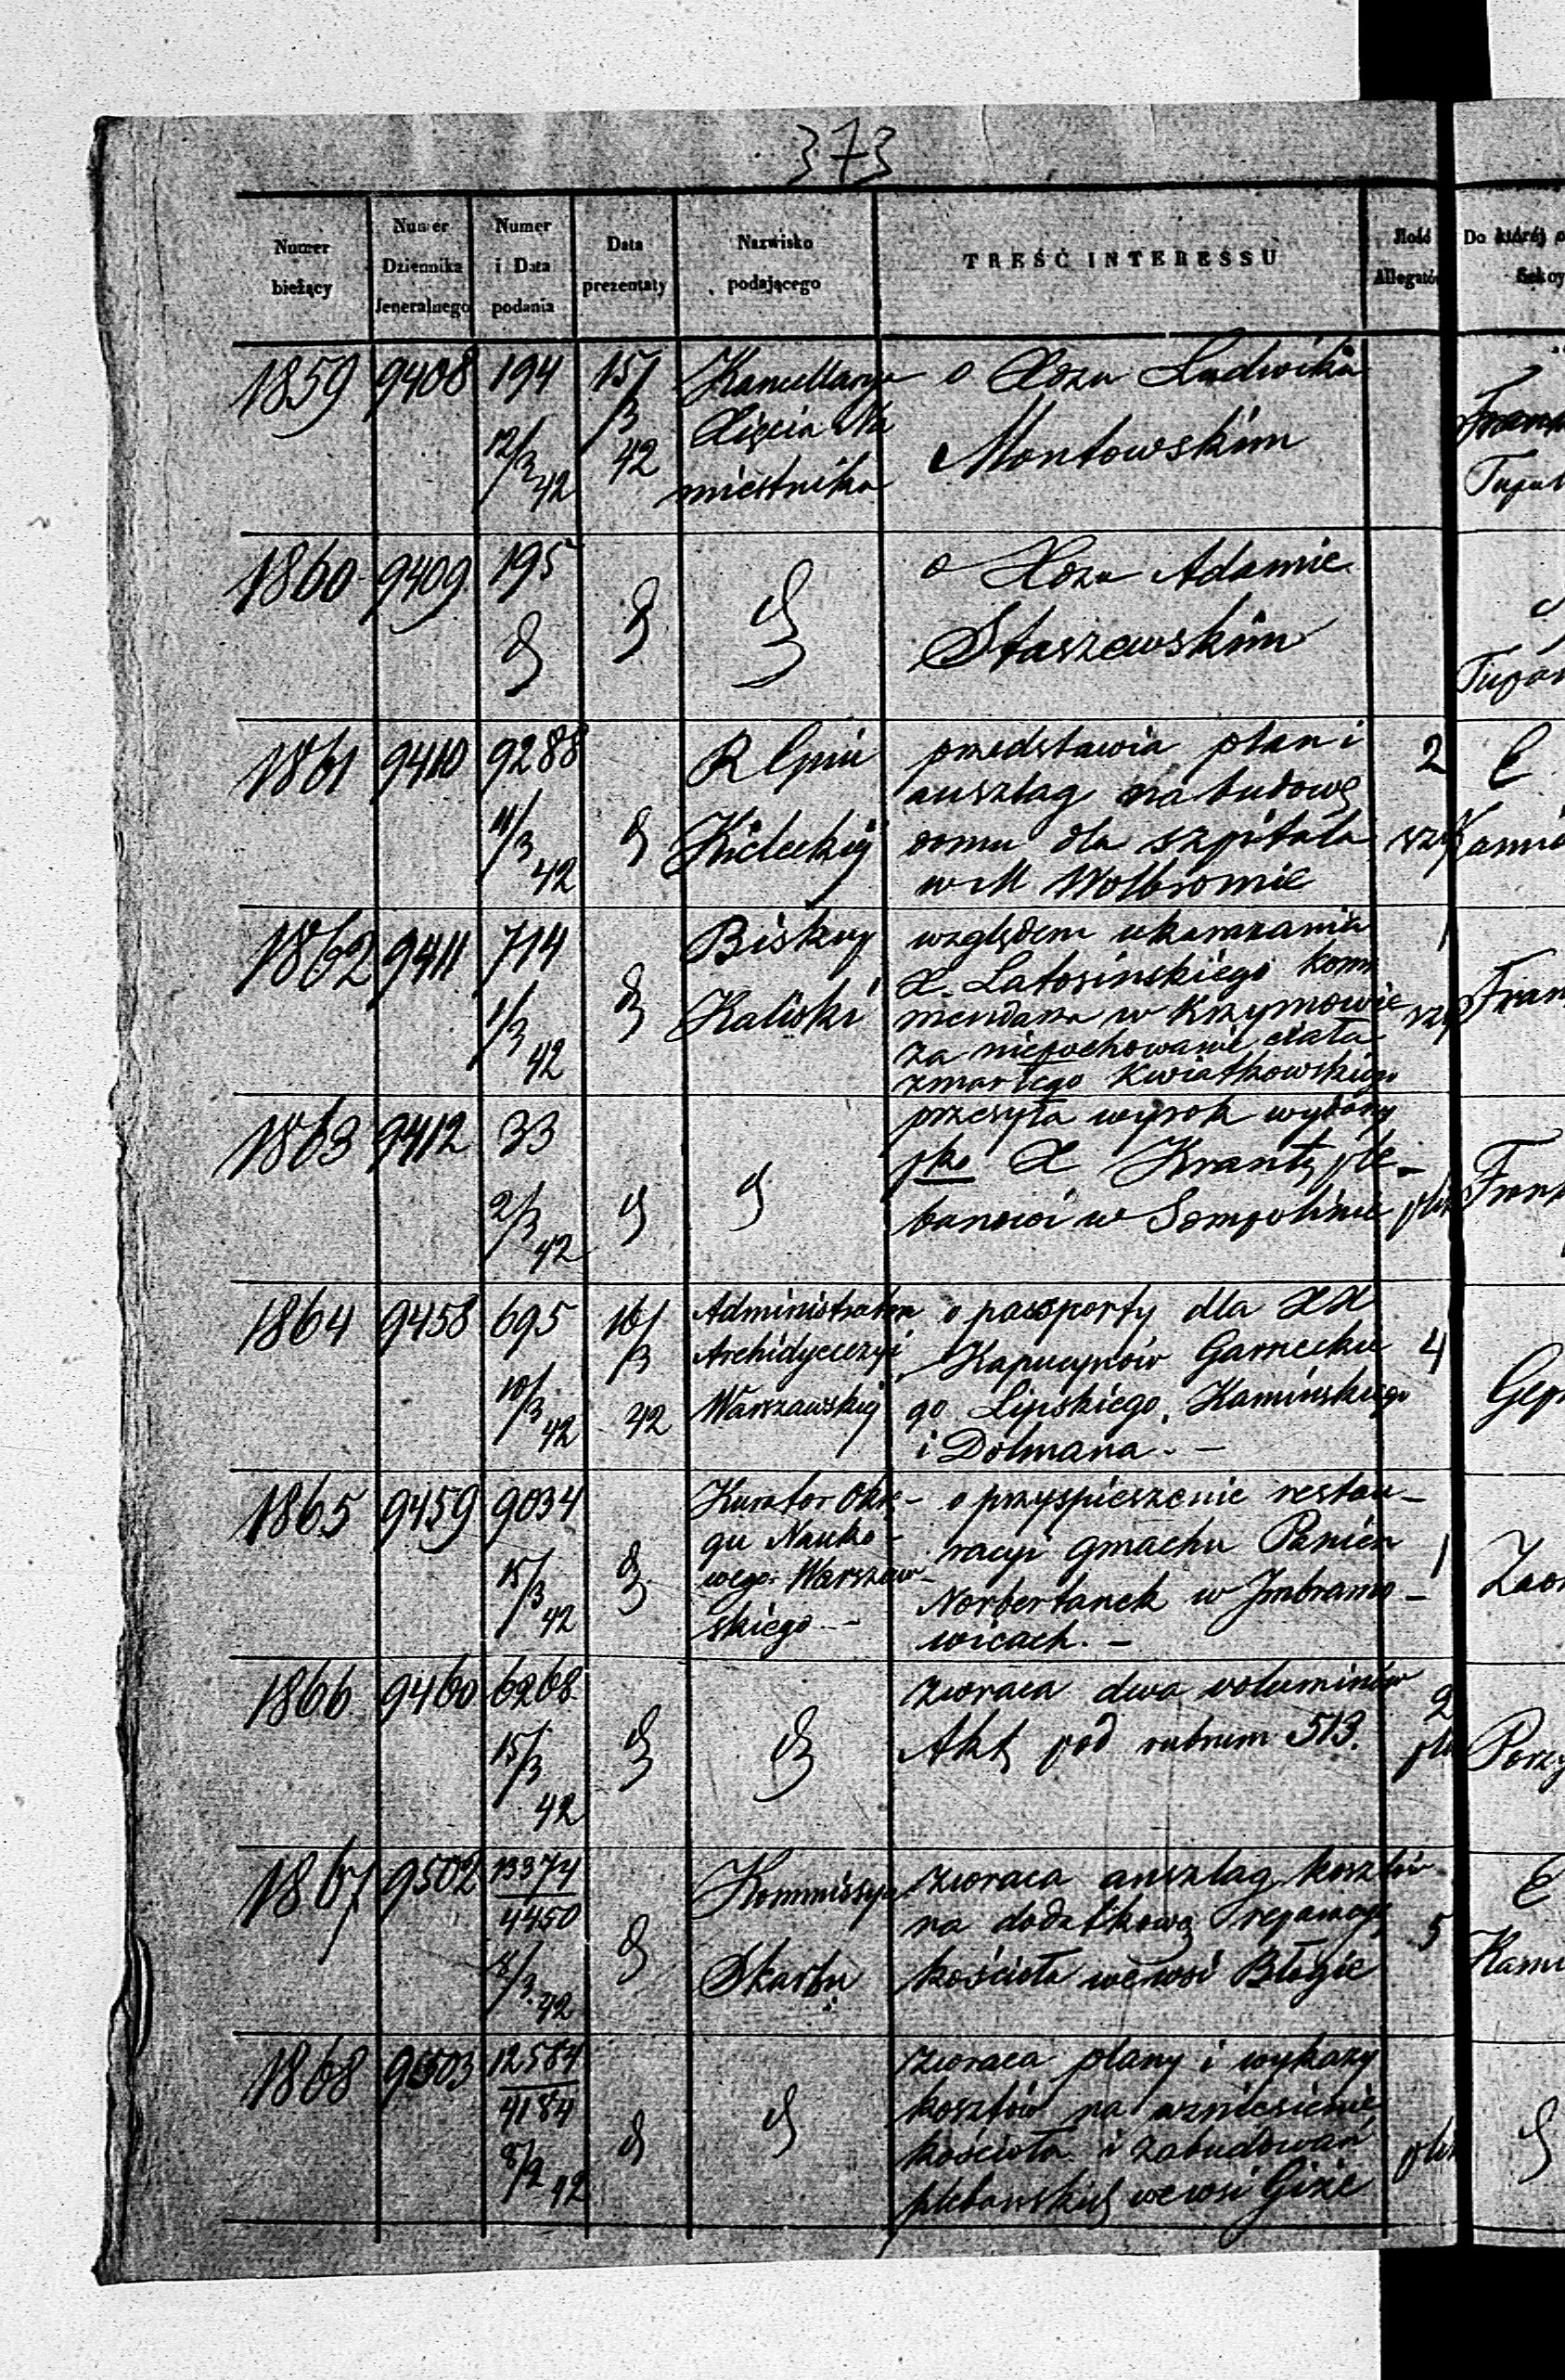 373
Numer bieżący
Numer Dziennika Jeneralnego
Numer i Data podania
Data prezentaty
Nazwisko podającego
TREŚĆ INTERESSU
Ilość Allegatów
Do której
1859 9408 194 12/3 42 15/3 42
Kancellarya
Xięcia Na
miestnika
o Xozu Ludwiku
Montowskim
1860 9409 195
o Xozu Adamie
Staszewskim
1861 9410 9288 11/3 42
R Gpiu
Kieleckiej
przedstawia plan i
anszlag na budowę
domu dla szpitala
w M Wolbromie
2
1862 9411 714 1/3 42
Biskup
Kaliski
względem ukarania
X. Latosinskiego kom
mendarza w Krzymowie
za niepochowanie ciała
zmarłego Kwiatkowskiego
1
1863 9412 33 2/3 42
przesyła wyrok wydany
pko X Krantz ple-
banowi w Sompolinie
1864 9458 695 10/3 42 16/3 42
Administrator
Archidyecezyi
Warszawskiej
o passporty dla XX
Kapucynów Garneckie
go Lipskiego, Kamińskiego
i Dolmana. -
4
1865 9459 9034 15/3 42
Kurator Okr-
gu Nauko-
wego Warszaw-
skiego -
o przyspieszenie restau-
racyi gmachu Panien
Norbertanek w Imbramo-
wicach. -
1
1866 9460 6268 15/3 42
zwraca dwa voluminów
Akt pod rubrum 513.
2
1867 9502 13374 4450 8/3 42
Kommissya
Skarbu
zwraca anszlag kosztów
na dodatkową reparacyę
kościoła we wsi Błogie
5
1868 9503 12584 4184 8/2 42
zwraca plany i wykazy
kosztów na wzniesienie
kościoła i zabudowań
plebańskich we wsi Giże